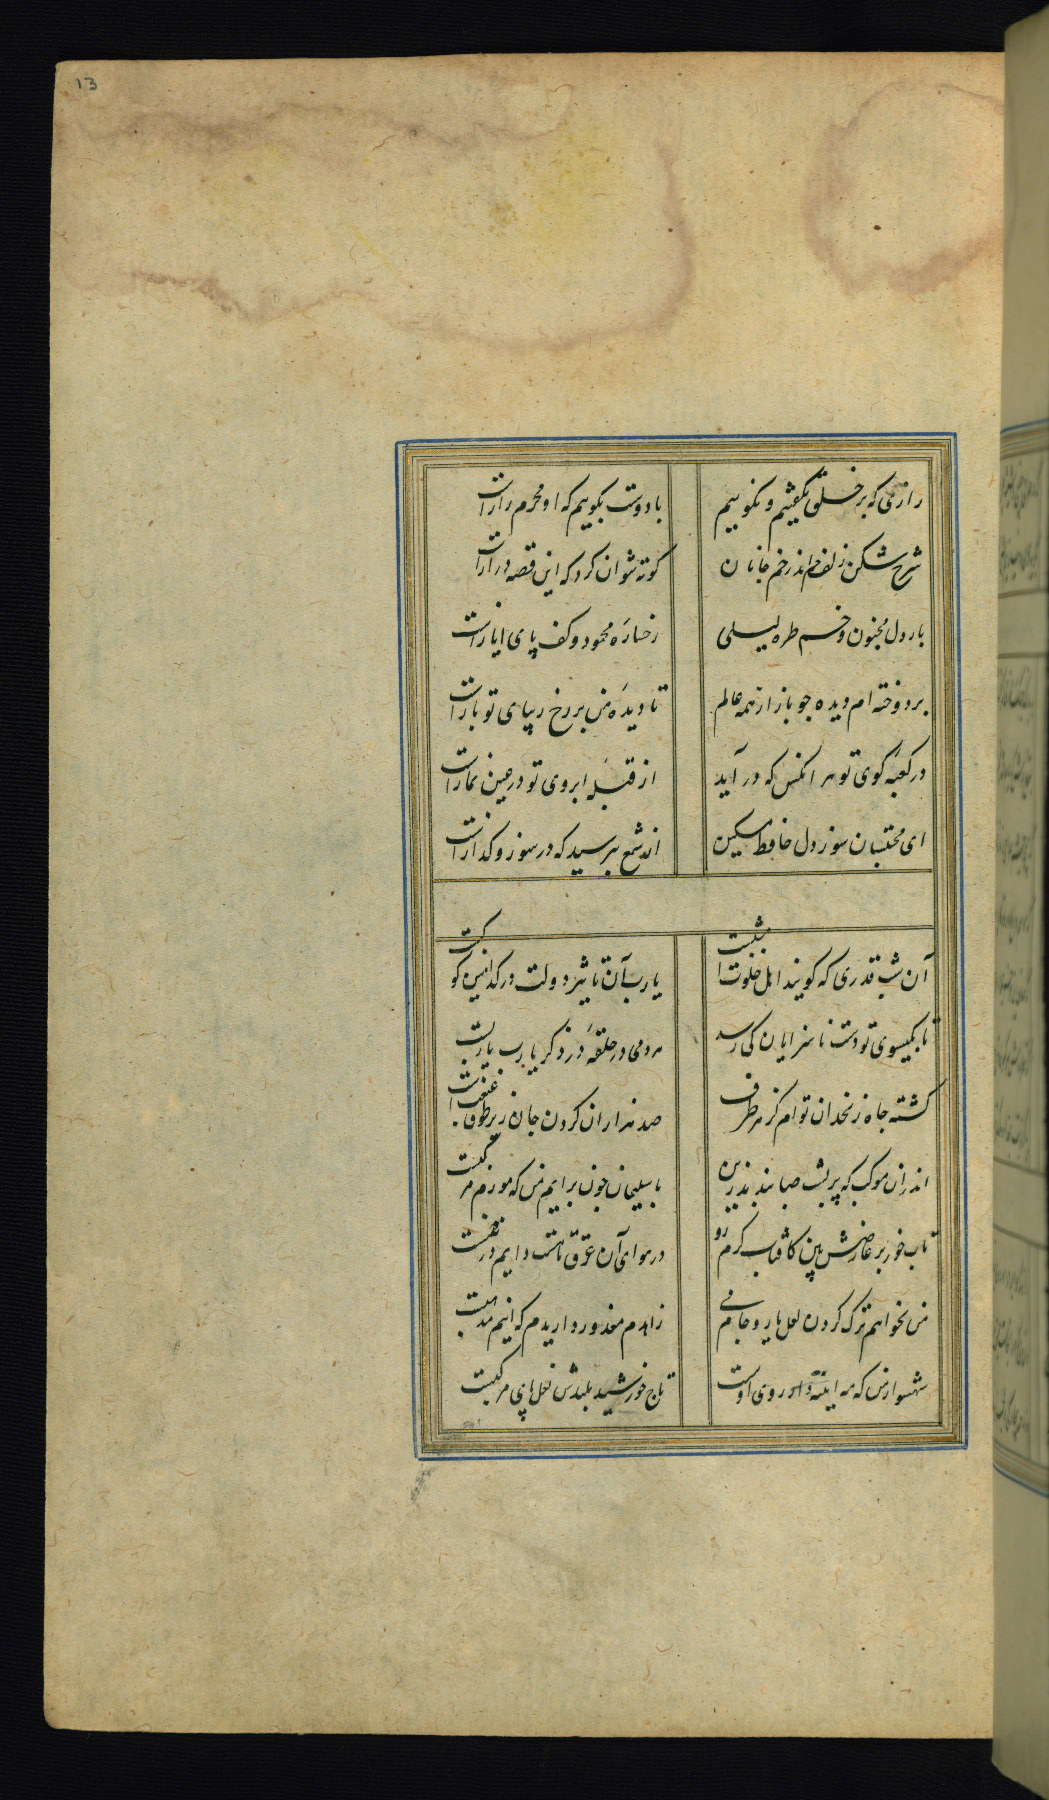 13
رازی که بر خلق نگفتیم و نگوییم
با دوست بگوییم که او محرم رازست
شرح شکن زلف خم اندر خم جانان
کوته نتوان کرد که این قصه درازست
بار دل مجنون و خم طره لیلی
رخساره محمود و کف پای ایازست
بردوخته‌ام دیده چو باز از همه عالم
تا دیده من بر رخ زیبای تو بازست
در کعبه کوی تو هر آنکس که درآید
از قبله ابروی تو در عین نمازست
ای مجلسیان سوز دل حافظ مسکین
از شمع بپرسید که در سوز و گدازست
آن شب قدری که گویند اهل خلوت امشبست
یا رب آن تاثیر دولت در کدامین کوکبست
تا بگیسوی تو دست ناسزایان کی رسد
هر دمی در حلقه در ذکر یارب یاربست
کشته چاه زنخدان توام کز هر طرف
صد هزاران گردن جان زیر طوق غبغبست
اندران موکب که بر پشت صبا بندند زین
با سلیمان چون برانیم من که مورم مرکبست
تاب خور بر عارضش بین کافتاب گرم رو
در هوای آن عرق تا هست دایم در تبست
من نخواهم ترک کردن لعل یار و جام می
زاهدم معذور داریدم که اینم مذهبست
شهسوار من که مه ایینه دار روی اوست
تاج خورشید بلندش نعل پای مرکبست